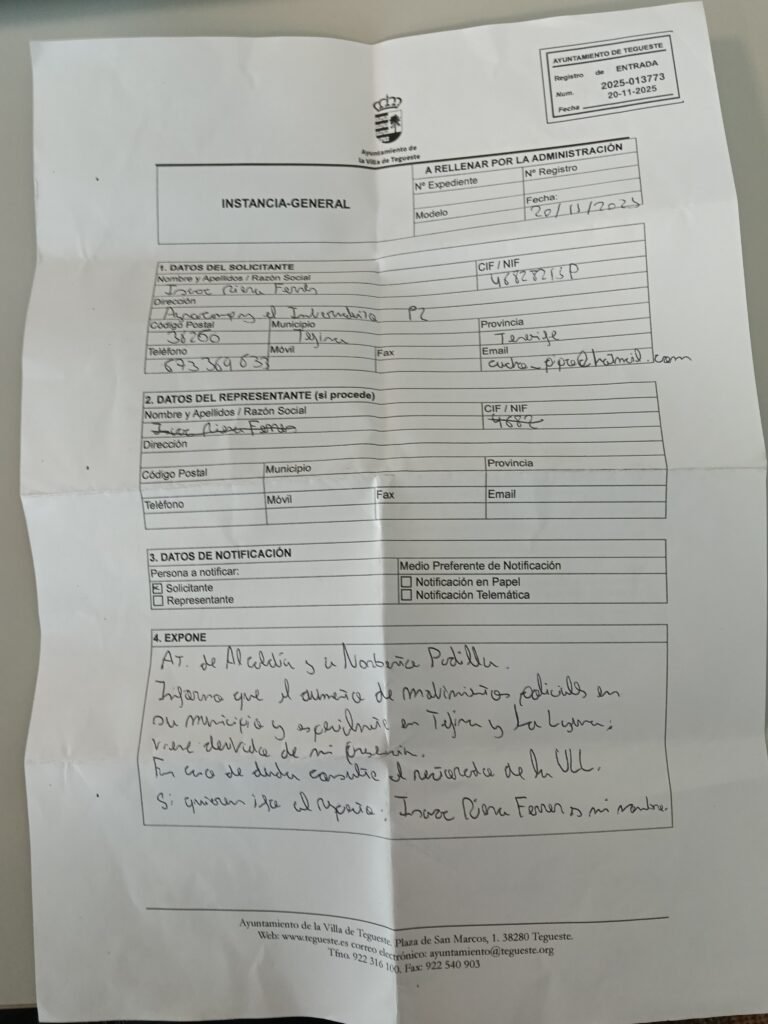 AYUNTAMIENTO DE TEGUESTE
Registro de ENTRADA
Num. 2025-013773
Fecha 20-11-2025
Ayuntamiento de
la Villa de Tegueste
INSTANCIA-GENERAL
A RELLENAR POR LA ADMINISTRACIÓN
Nº Expediente Nº Registro
Modelo Fecha:
20/11/2025
1. DATOS DEL SOLICITANTE
Nombre y Apellidos / Razón Social CIF / NIF
Isaac Riera Ferrer 46828213P
Dirección
el P2
Código Postal Municipio Provincia
38260 Tejina Tenerife
Teléfono Móvil Fax Email
673 369 633 @hotmail.com
2. DATOS DEL REPRESENTANTE (si procede)
Nombre y Apellidos / Razón Social CIF / NIF
Isaac Riera Ferrer 4682
Dirección
Código Postal Municipio Provincia
Teléfono Móvil Fax Email
3. DATOS DE NOTIFICACIÓN
Persona a notificar: Medio Preferente de Notificación
Solicitante Notificación en Papel
Representante Notificación Telemática
4. EXPONE
AT. de Alcaldía y a Padilla.
Informo que el aumento de movimientos policiales en
su municipio y especialmente en Tejina y La Laguna;
viene derivada de mi presencia.
En caso de duda consulte el rectorado de la ULL.
Si quieren al ; Isaac Riera Ferrer es mi nombre.
Ayuntamiento de la Villa de Tegueste. Plaza de San Marcos, 1. 38280 Tegueste.
Web: www.tegueste.es correo electrónico: ayuntamiento@tegueste.org
Tfno. 922 316 100. Fax: 922 540 903